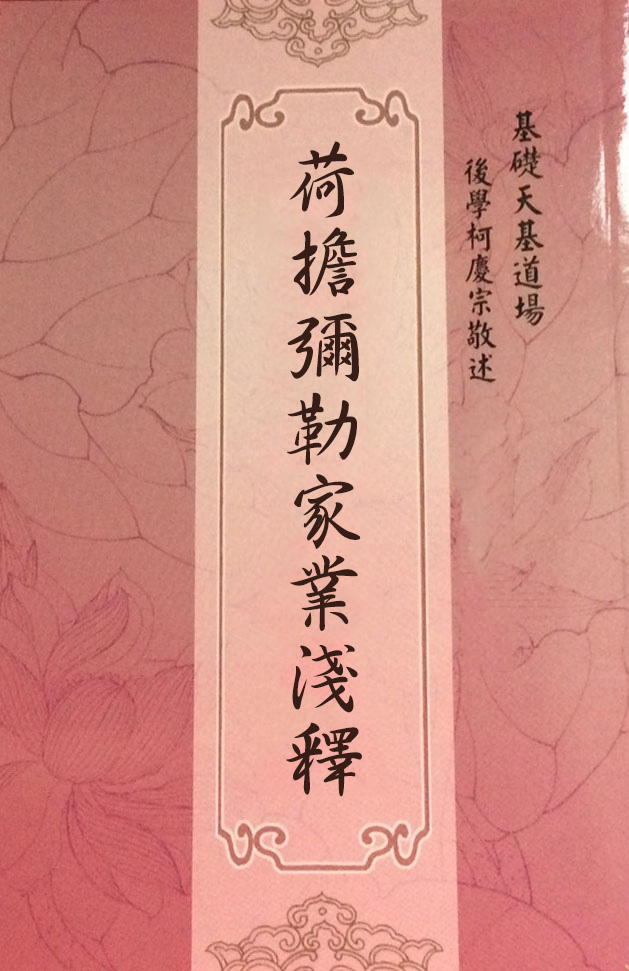 基礎天基道場
後學柯慶宗敬述
荷擔彌勒家業淺釋